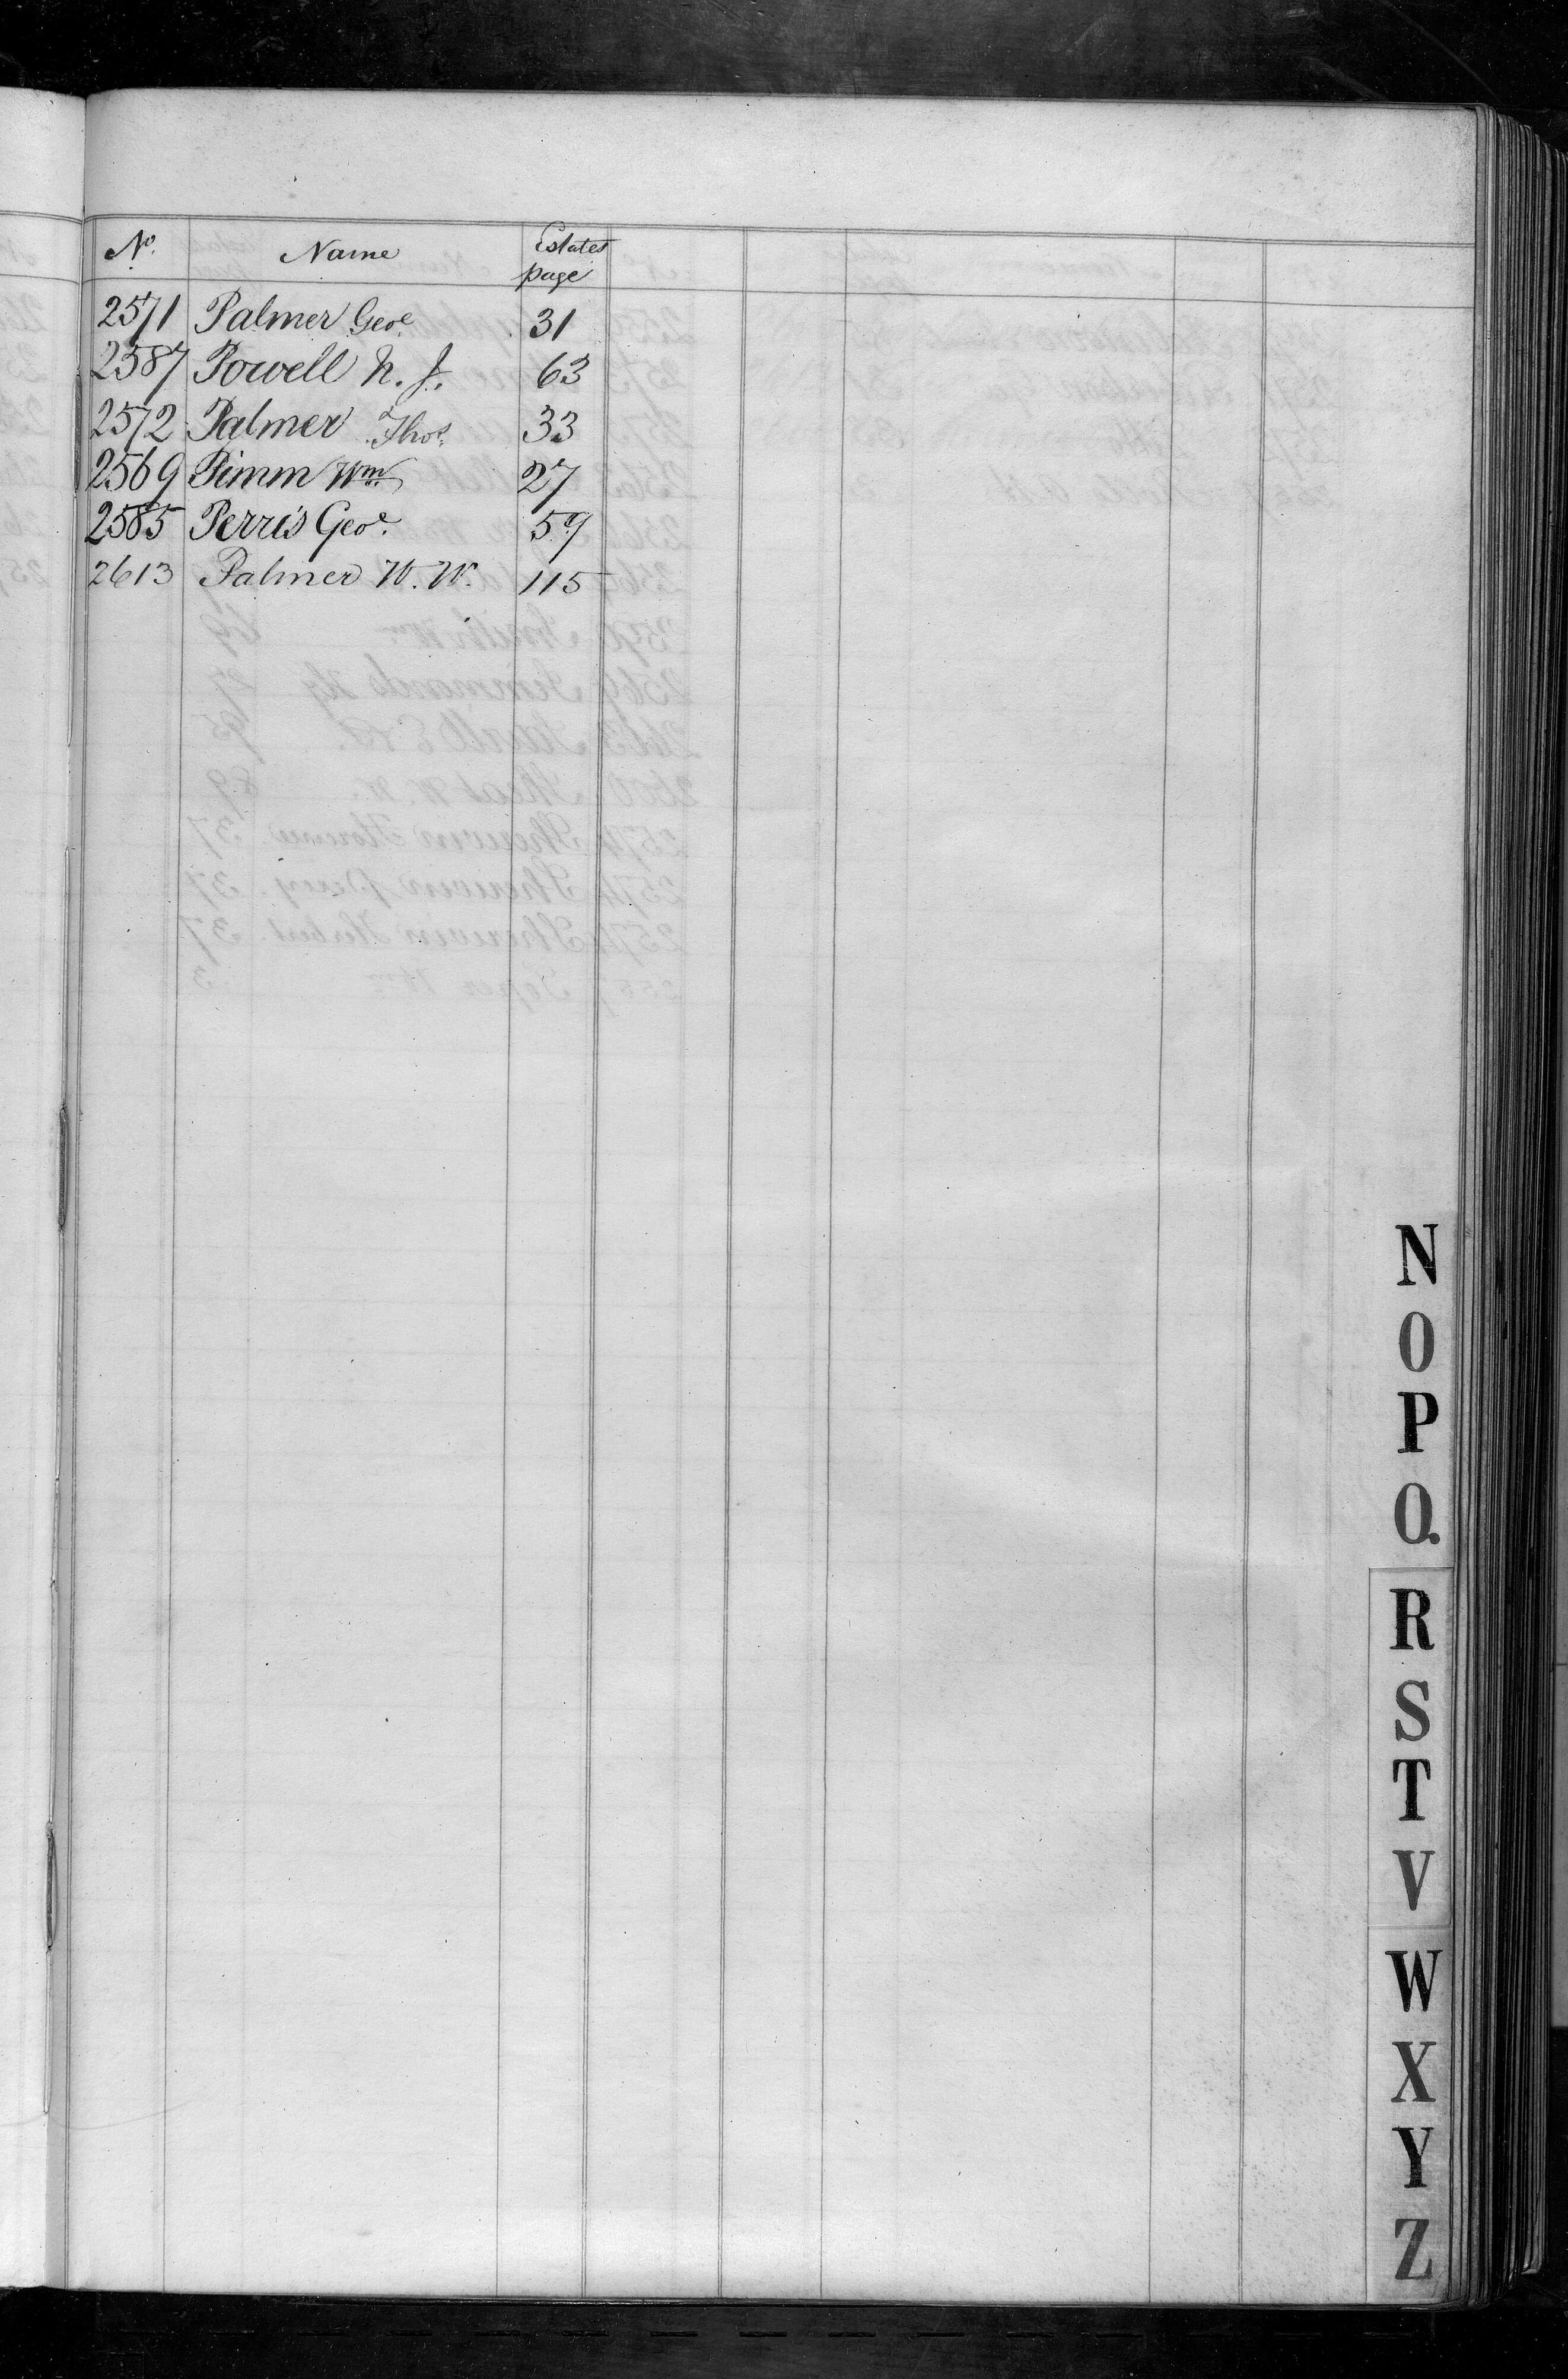 No. Name Estates page
2571 Palmer Geoe 31
2587 Powell N. J. 63
2572 Palmer Thos. 33
2569 Pimm Wm 27
2585 Perris Geoe. 59
2613 Palmer W. W. 115
N
O
P
Q.
R
S
T
V
W
X
Y
Z